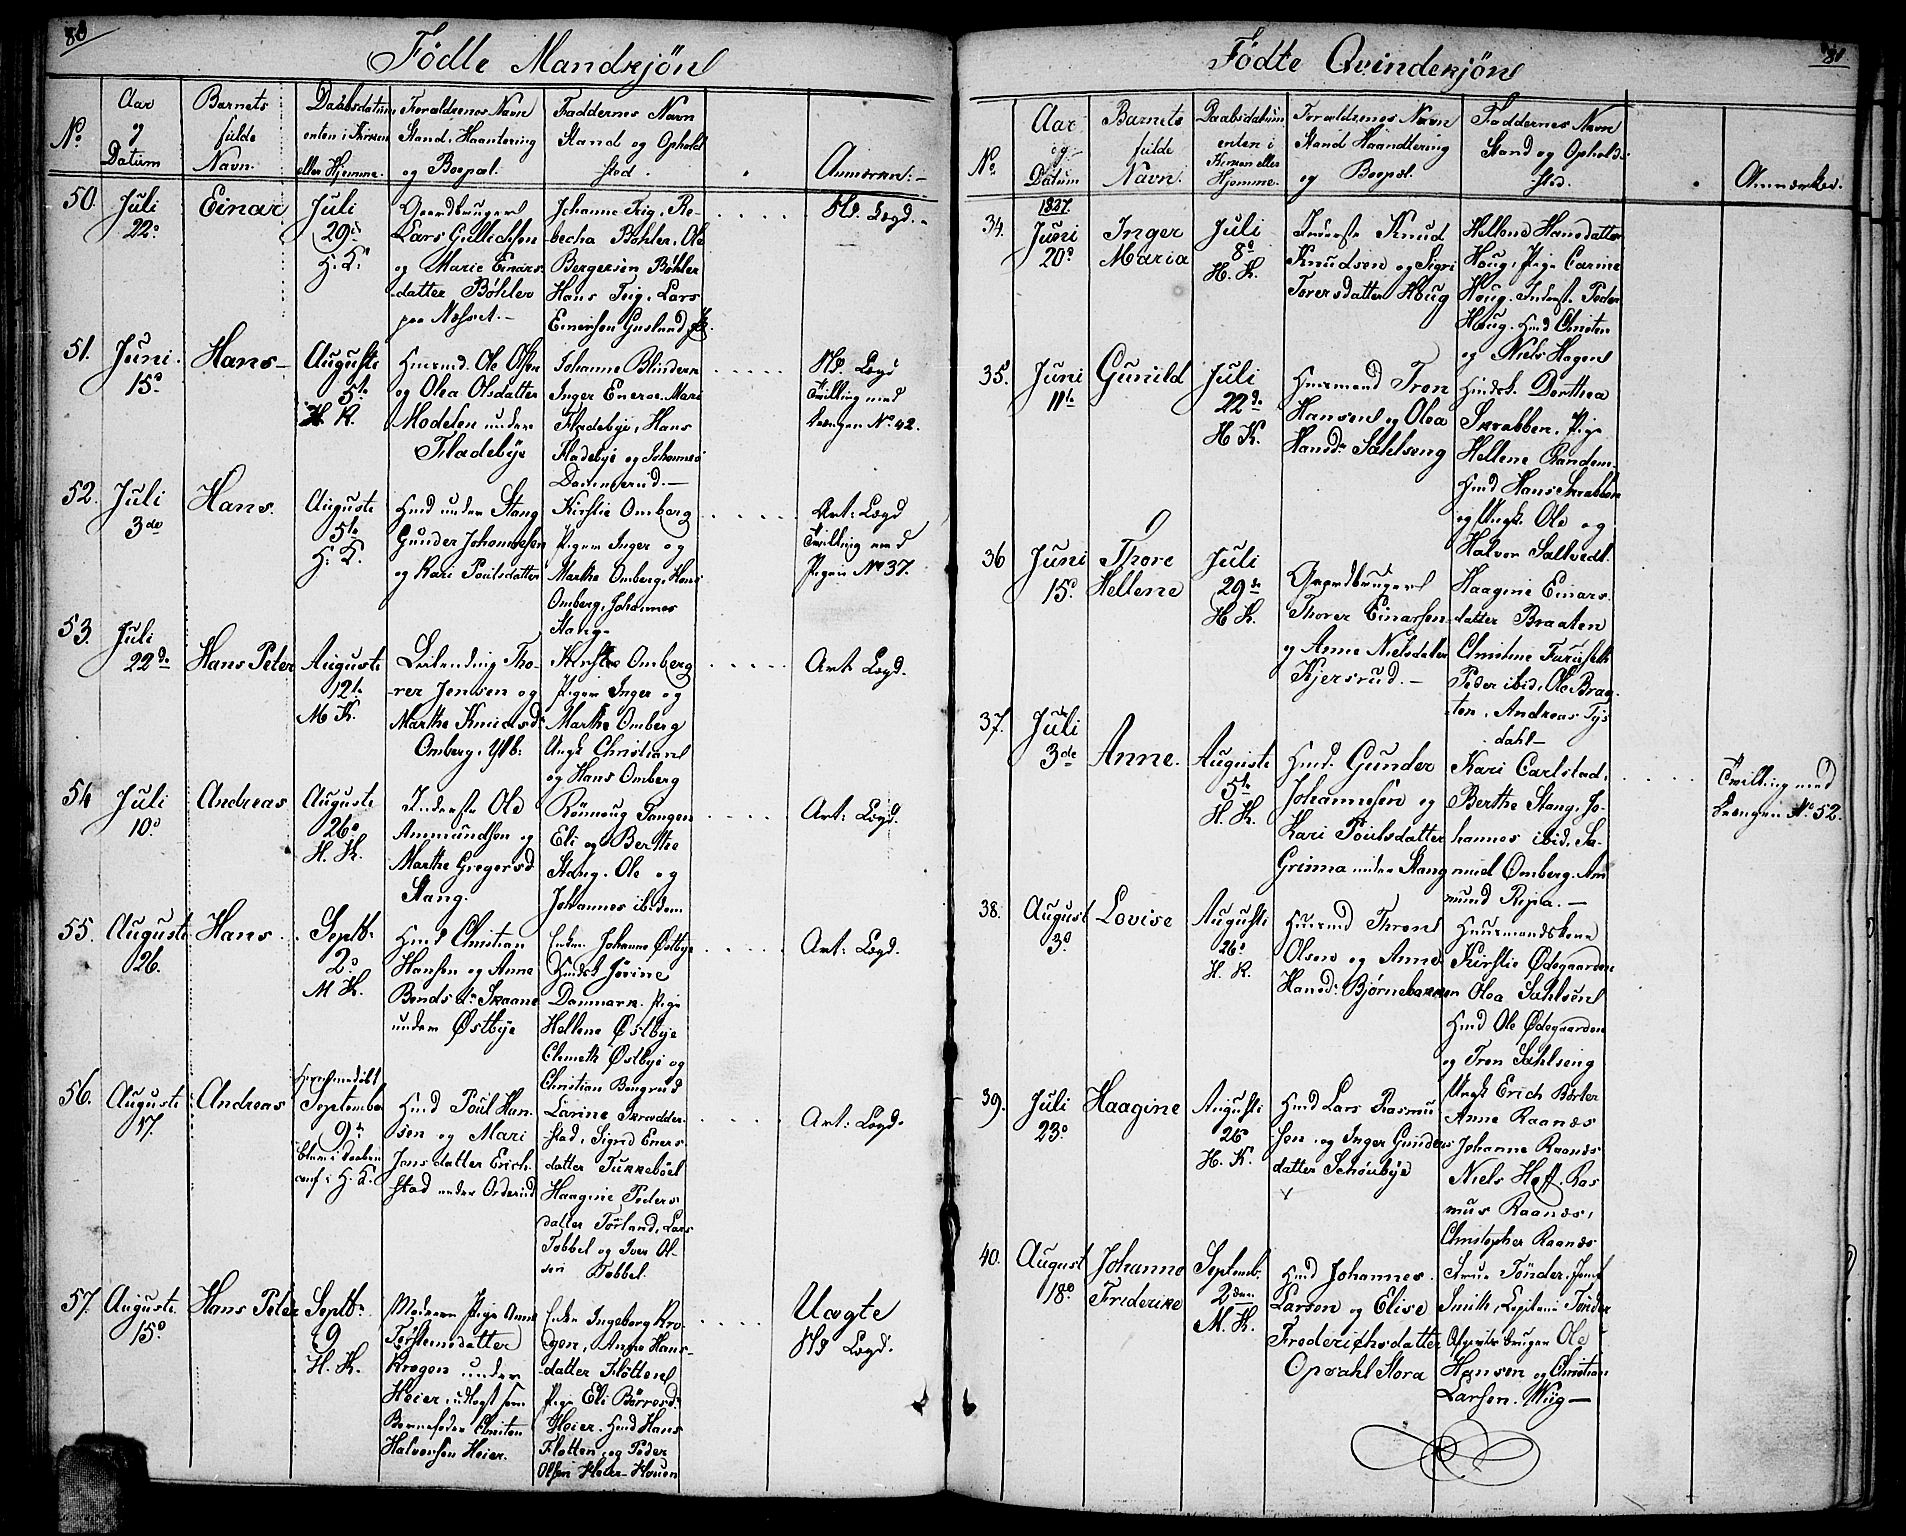 80
Fødte Mandkjøn
No
Aar
og
Datum
Barnets
fulde
Navn.
Daabsdatum
enten i Kirken
eller Hjemme.
Forældrenes Navn
Stand, Haantering
og Boepæl.
Faddernes Navn
Stand og Ophold
sted.
Anmærkn:
50.
Juli
22.
Einar
Juli
29de
H. K.
Gaardbruger
Lars Gullichsen
og Marie Einars-
datter Bøhler
paa Næsset.
Johanne Teig, Re-
becha Bøhler, Ole
Bergersen Bøhler
Hans Teig, Lars
Einersen Gusland
Nd. Lægd.
51.
Juni
15.
Hans
Augusti
5te
H. K.
Huusmd. Ole Olsen
og Olea Olsdatter
Modelen under
Fladebye
Johanne Blindern
Inger Eneroe. Mari
Fladebye, Hans
Fladebye og Johannes
Dammerud.
Nd. Lægd
Tvilling med
No. 42.
52.
Juli
3de
Hans.
Auguste
5te
H. K.
Hmd under Stang
Gunder Johannesen
og Kari Poulsdatter
Kirstie Omberg
Pigen Inger og
Marthe Omberg, Hans
Omberg, Johannes
Stang.
Art: Lægd
Tvilling med
Pigen No 37.
53.
Juli
22de
Hans Peter
Auguste
12te
M K.
Leilending Tho-
rer Jensen og
Marthe Knudsd:
Omberg, Ylb:
Kirstie Omberg
Pigen Inger og
Marthe Omberg
Ungk Christian
og Hans Omberg
Art: Lægd.
54
Juli
10.
Andreas
Auguste
26.
H. K.
Inderste Ole
Ammundsen og
Marthe Gregersd
Stang.
Rønnoug Tangen
Eli og Berthe
Stang. Ole og
Johannes ibidem
Art: Lægd.
55.
Auguste
26.
Hans.
Septb:
2.
M K.
Hmd Christian
Hansen og Anne
Bendsdr Skaane
under Østbye
Enken Johanne Østbye
Hmdsk Jørine
Danmark. Pige
Hellene Østbye
Clemeth Østbye og
Christian Bengrud
Art: Lægd.
56.
Auguste
17.
Andreas
Hjemmedøbt
September
9de
H. K.
Hmd Poul Han-
sen og Mari
Jansdatter Erich-
stad under Orderud
Larine Skradder-
stad, Sigrid Eners-
datter Tukkebøel
Haagine Peders-
datter Tørland, Lars
Tobbel og Iver Ol-
sen Tobbel.
Art: Lægd.
57.
Auguste
15.
Hans Peter
Septb:
9
H. K.
Moderen Pige Anne
Torstensdatter
Kragen under
Heier, udlagt som
Barnefader Christen
Halvorsen Heier.
Enken Ingeborg Kro-
gen, Anne Hans-
datter Fløtten
Pige Eli Børresd:
Heier. Hmd Hans
Fløtten og Peder
Olsen Heier-Houen
Uægte
Nd Lægd.
81
Fødte Qvindekjøn
No
Aar
og
Datum
Barnets
fulde
Navn.
Daabsdatum
enten i
Kirken eller
Hjemme.
Forældrenes Navn
Stand Haandtering
og Boepæl.
Faddernes Navn
Stand og Opholds-
sted.
Anmærkn.
34.
1827.
Juni
20.
Inger
Maria
Juli
8.
H. K.
Inderste Knud
Knudsen og Sigri
Torersdatter Houg
Hellene Hansdatter
Houg, Pige Carine
Houg. Inderste Peder
Houg. Hmd Christen
og Niels Hagen
35.
Juni
11te
Gunild
Juli
22de
H K.
Huusmand Tron
Hansen og Olea
Hansdr Sahlseng
Hmdsk. Dorthea
Skrabben. Pige
Hellene Randem.
Hmd Hans Skrabben
og Ungk. Ole og
Halvor Saltvedt.
36
Juni
15.
Thore
Hellene
Juli
29de
H K.
Gaardbruger
Thorer Einarsen
og Anne Nielsdatter
Kjersrud.
Haagine Einars-
datter Braaten
Christine Furuseth
Peder ibid, Ole Braa-
ten. Andreas Tys
dahl
37.
Juli
3de
Anne.
Auguste
5te
H. K.
Hmd. Gunder
Johannesen og
Kari Poulsdatter
Grinna under Stang
Kari Carlstad,
Berthe Stang, Jo-
hannes ibid, Sa-
muel Omberg. Am
mund Ripa.
Tvilling med
No. 52.
38.
August
3.
Lovise
Augusti
26.
H. K.
Huusmd Thron
Olsen og Anne
Hansdr Bjørnebakken
Huusmandskone
Kirstie Ødegaarden
Olea Sahlseng
Hmd Ole Ødegaarden
og Tron Sahlseng
39.
Juli
23.
Haagine
Augusti
26
H. K.
Hmd Lars Rasmu
sen, og Inger Gunders
datter Schoubye
Ungk Erich Børter
Anne Raanæs
Johanne Raanæs
Niels Hoff. Ras
mus Raanæs,
Christopher Raanæs
40.
August
18.
Johanne
Friderike
Septemb:
2den
M. K.
Hmd Johannes
Larsen og Elise
Frederichsdatter
Opsahl Stora
Frue Tønder, Jomf
Smith, Capitain Tønder
Ole
Hansen og Christian
Larsen. Wiig